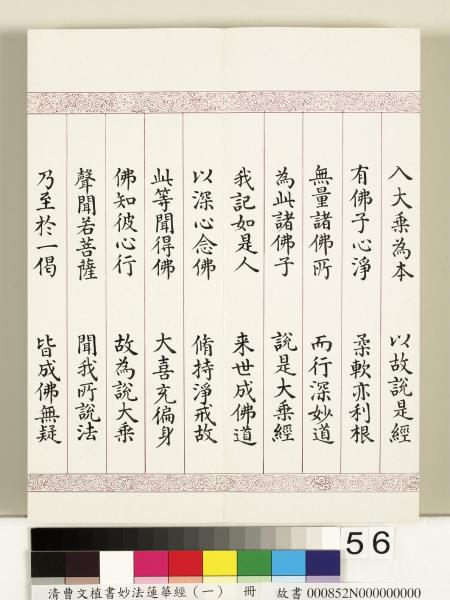 入大乘為本 以故說是經
有佛子心淨 柔軟亦利根
無量諸佛所 而行深妙道
為此諸佛子 說是大乘經
我記如是人 来世成佛道
以深心念佛 脩持淨戒故
此等聞得佛 大喜充徧身
佛知彼心行 故為說大乘
聲聞若菩薩 聞我所說法
乃至於一偈 皆成佛無疑
56
清曹文植書妙法蓮華經(一) 冊 故書 000852N000000000